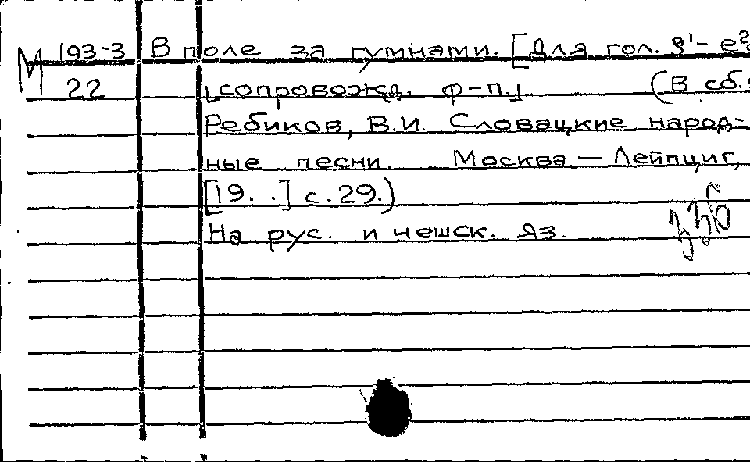 М 193-3 В поле за гумнами. [Для гол. g'-e²
22 [сопровожд. ф-п.] (В сб.:
Ребиков, В.И. Словацкие народ-
ные песни. Москва — Лейпциг,
[19. .] с. 29.)
На рус. и чешск. яз.